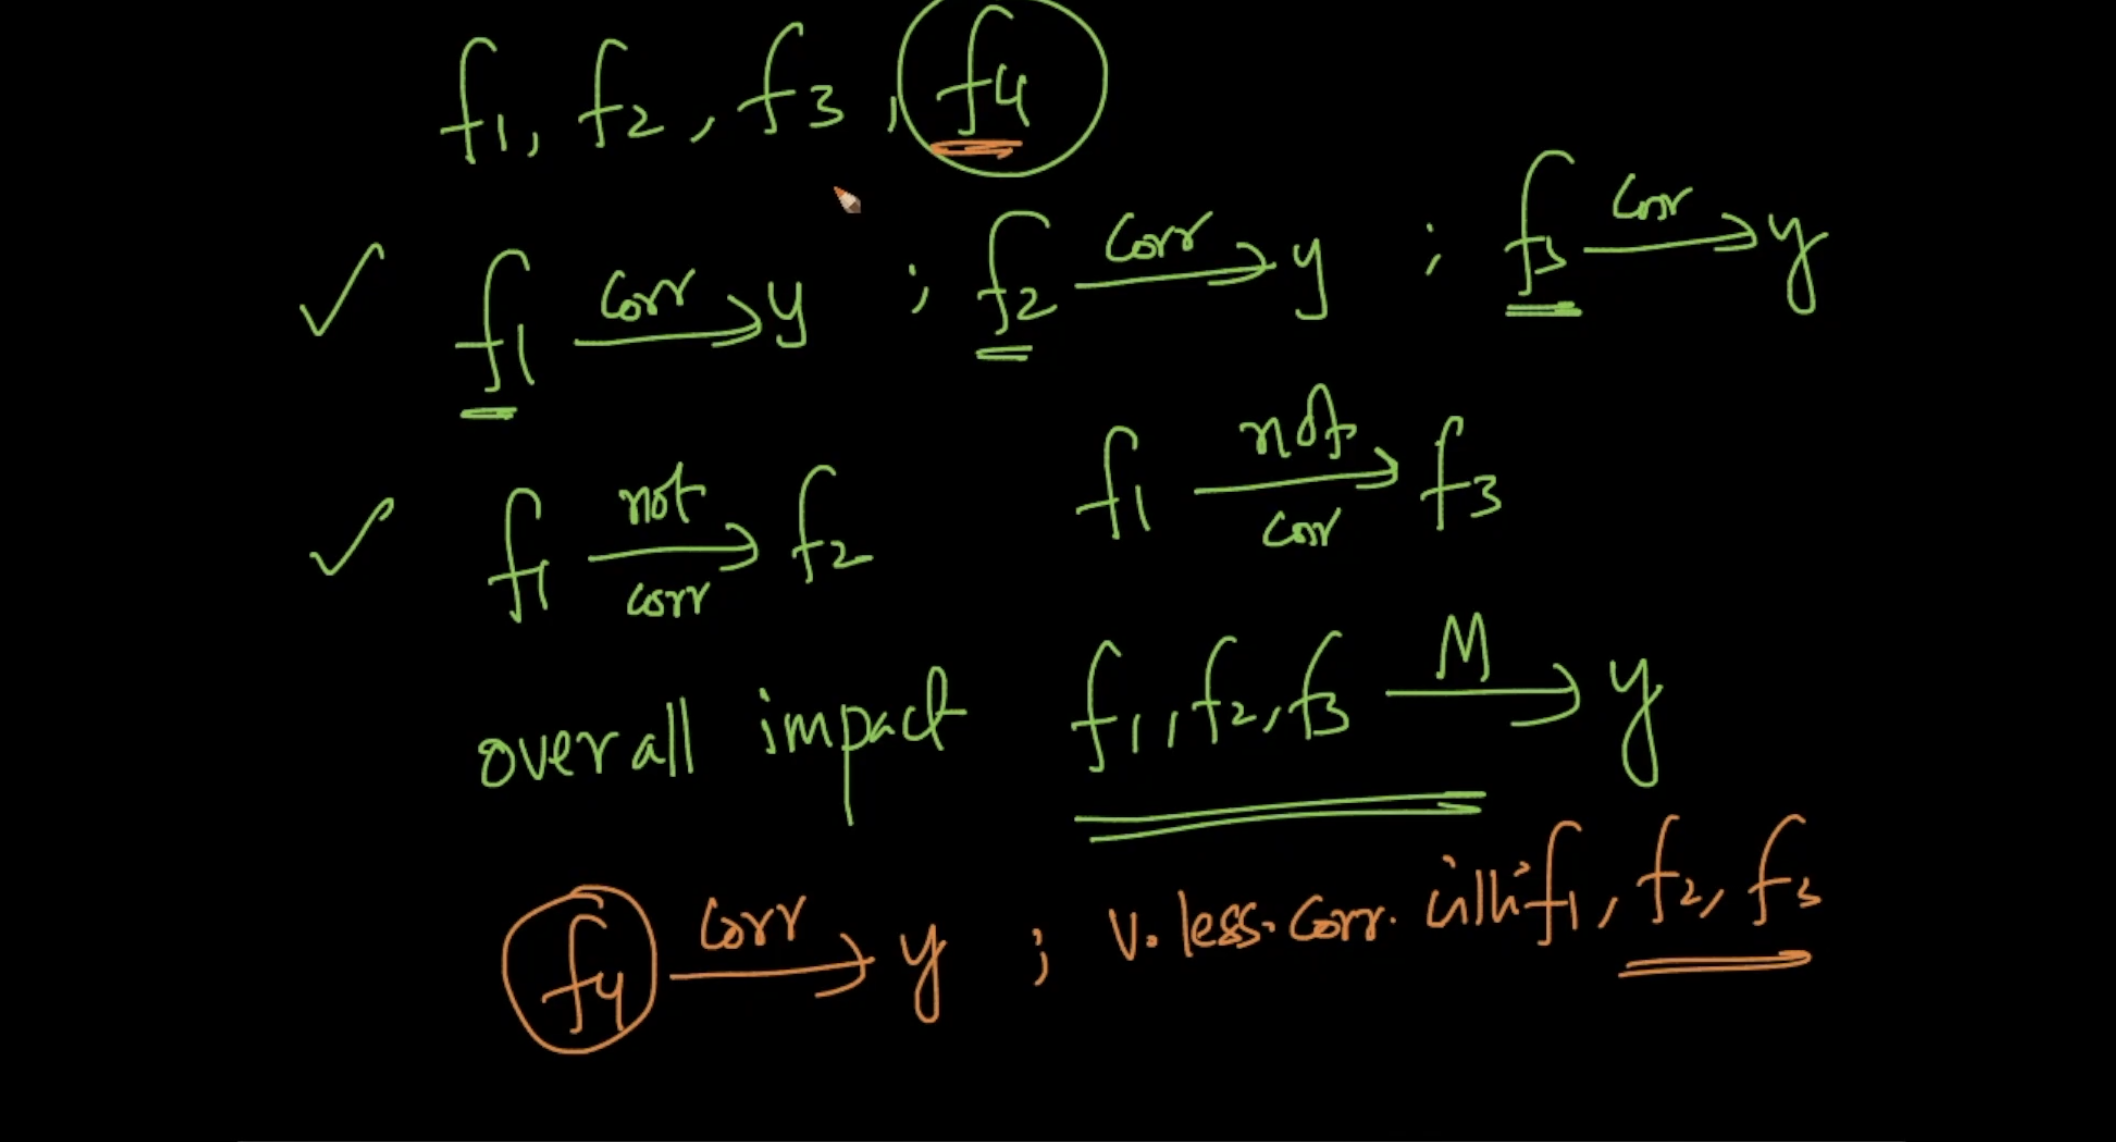 f1, f2, f3, f4
✓ f1 corr→ y ; f2 corr→ y ; f3 corr→ y
✓ f1 not corr→ f2 f1 not corr→ f3
overall impact f1, f2, f3 M→ y
f4 corr→ y ; v. less. corr. with f1, f2, f3